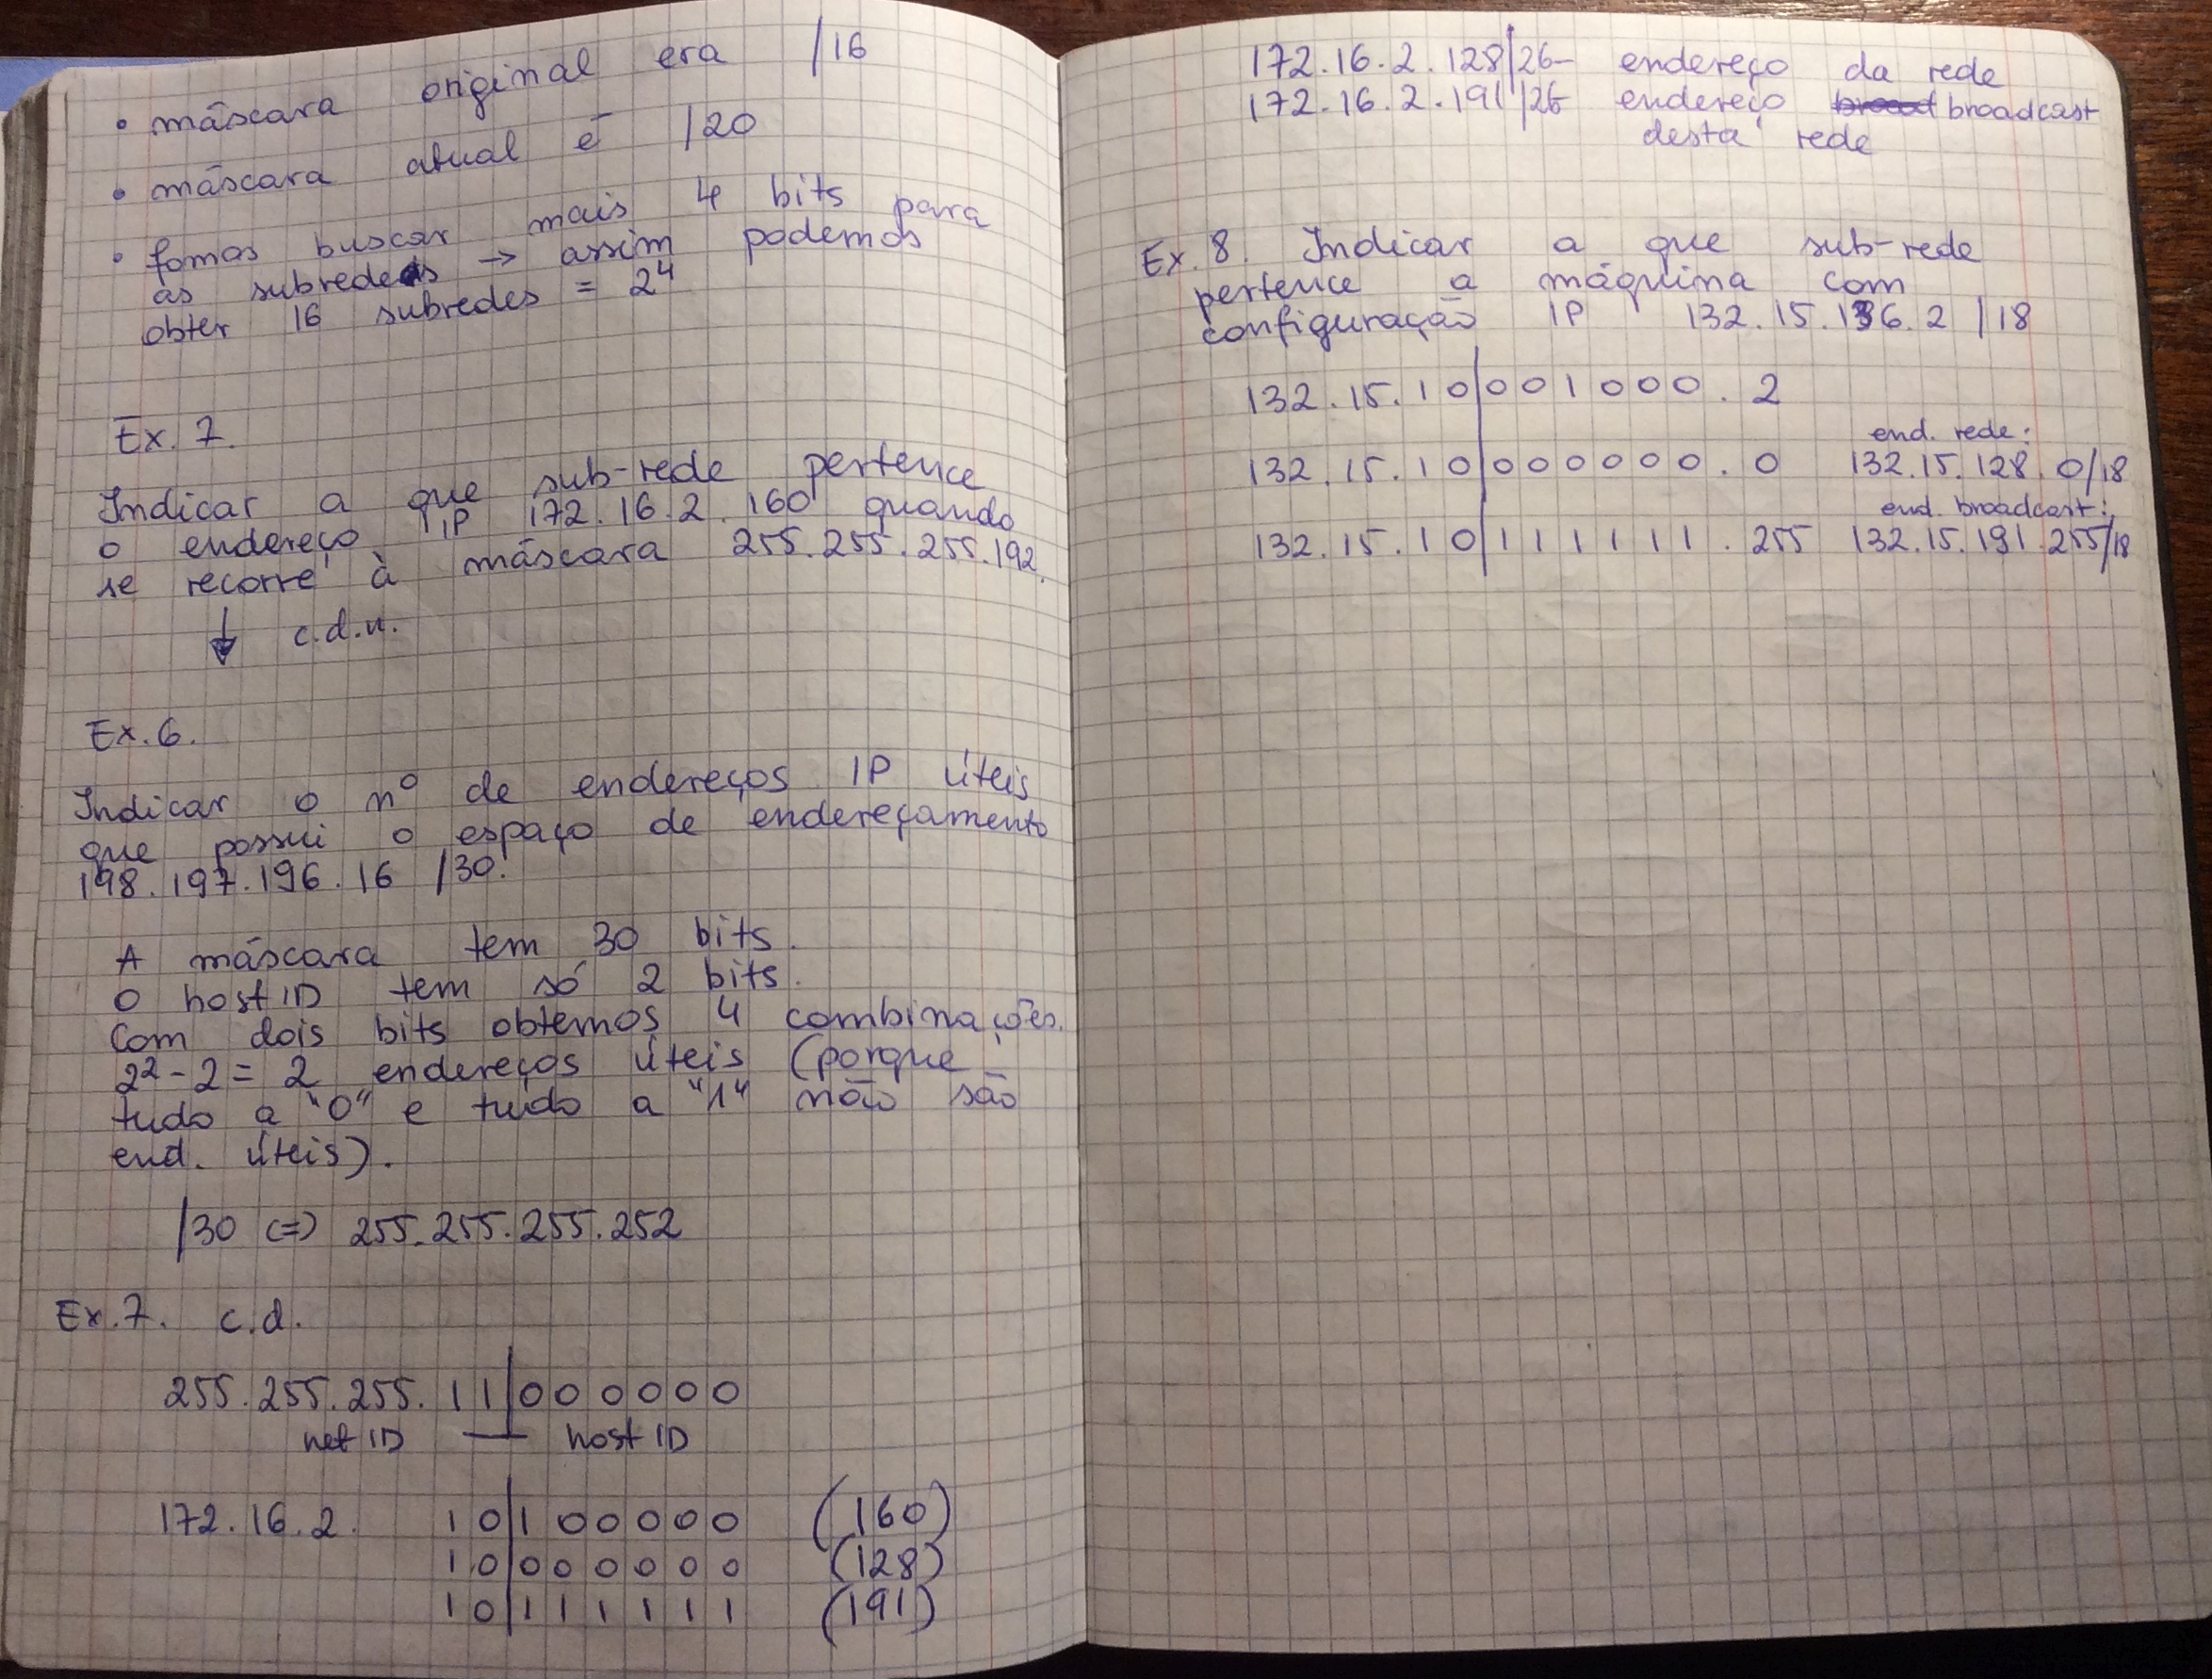 • máscara original era /16
• máscara atual é /20
• fomos buscar mais 4 bits para
as subredes → assim podemos
obter 16 subredes = 2⁴
Ex. 7.
Indicar a que sub-rede pertence
o endereço IP 172.16.2.160 quando
se recorre à máscara 255.255.255.192.
↓ c.d.n.
Ex. 6.
Indicar o nº de endereços IP úteis
que possui o espaço de endereçamento
198.197.196.16 /30.
A máscara tem 30 bits.
O host ID tem só 2 bits.
Com dois bits obtemos 4 combinações.
2²-2 = 2 endereços úteis (porque
tudo a "0" e tudo a "1" não são
end. úteis).
/30 <=> 255.255.255.252
Ex. 7. c.d.
255.255.255.11|000000
net ID — host ID
172.16.2. 10|100000 (160)
10|000000 (128)
10|111111 (191)
172.16.2.128/26 - endereço da rede
172.16.2.191/26 endereço broadcast
desta rede
Ex. 8. Indicar a que sub-rede
pertence a máquina com
configuração IP 132.15.136.2 /18
132.15.10|001000.2
end. rede:
132.15.10|000000.0 132.15.128.0/18
end. broadcast:
132.15.10|111111.255 132.15.191.255/18